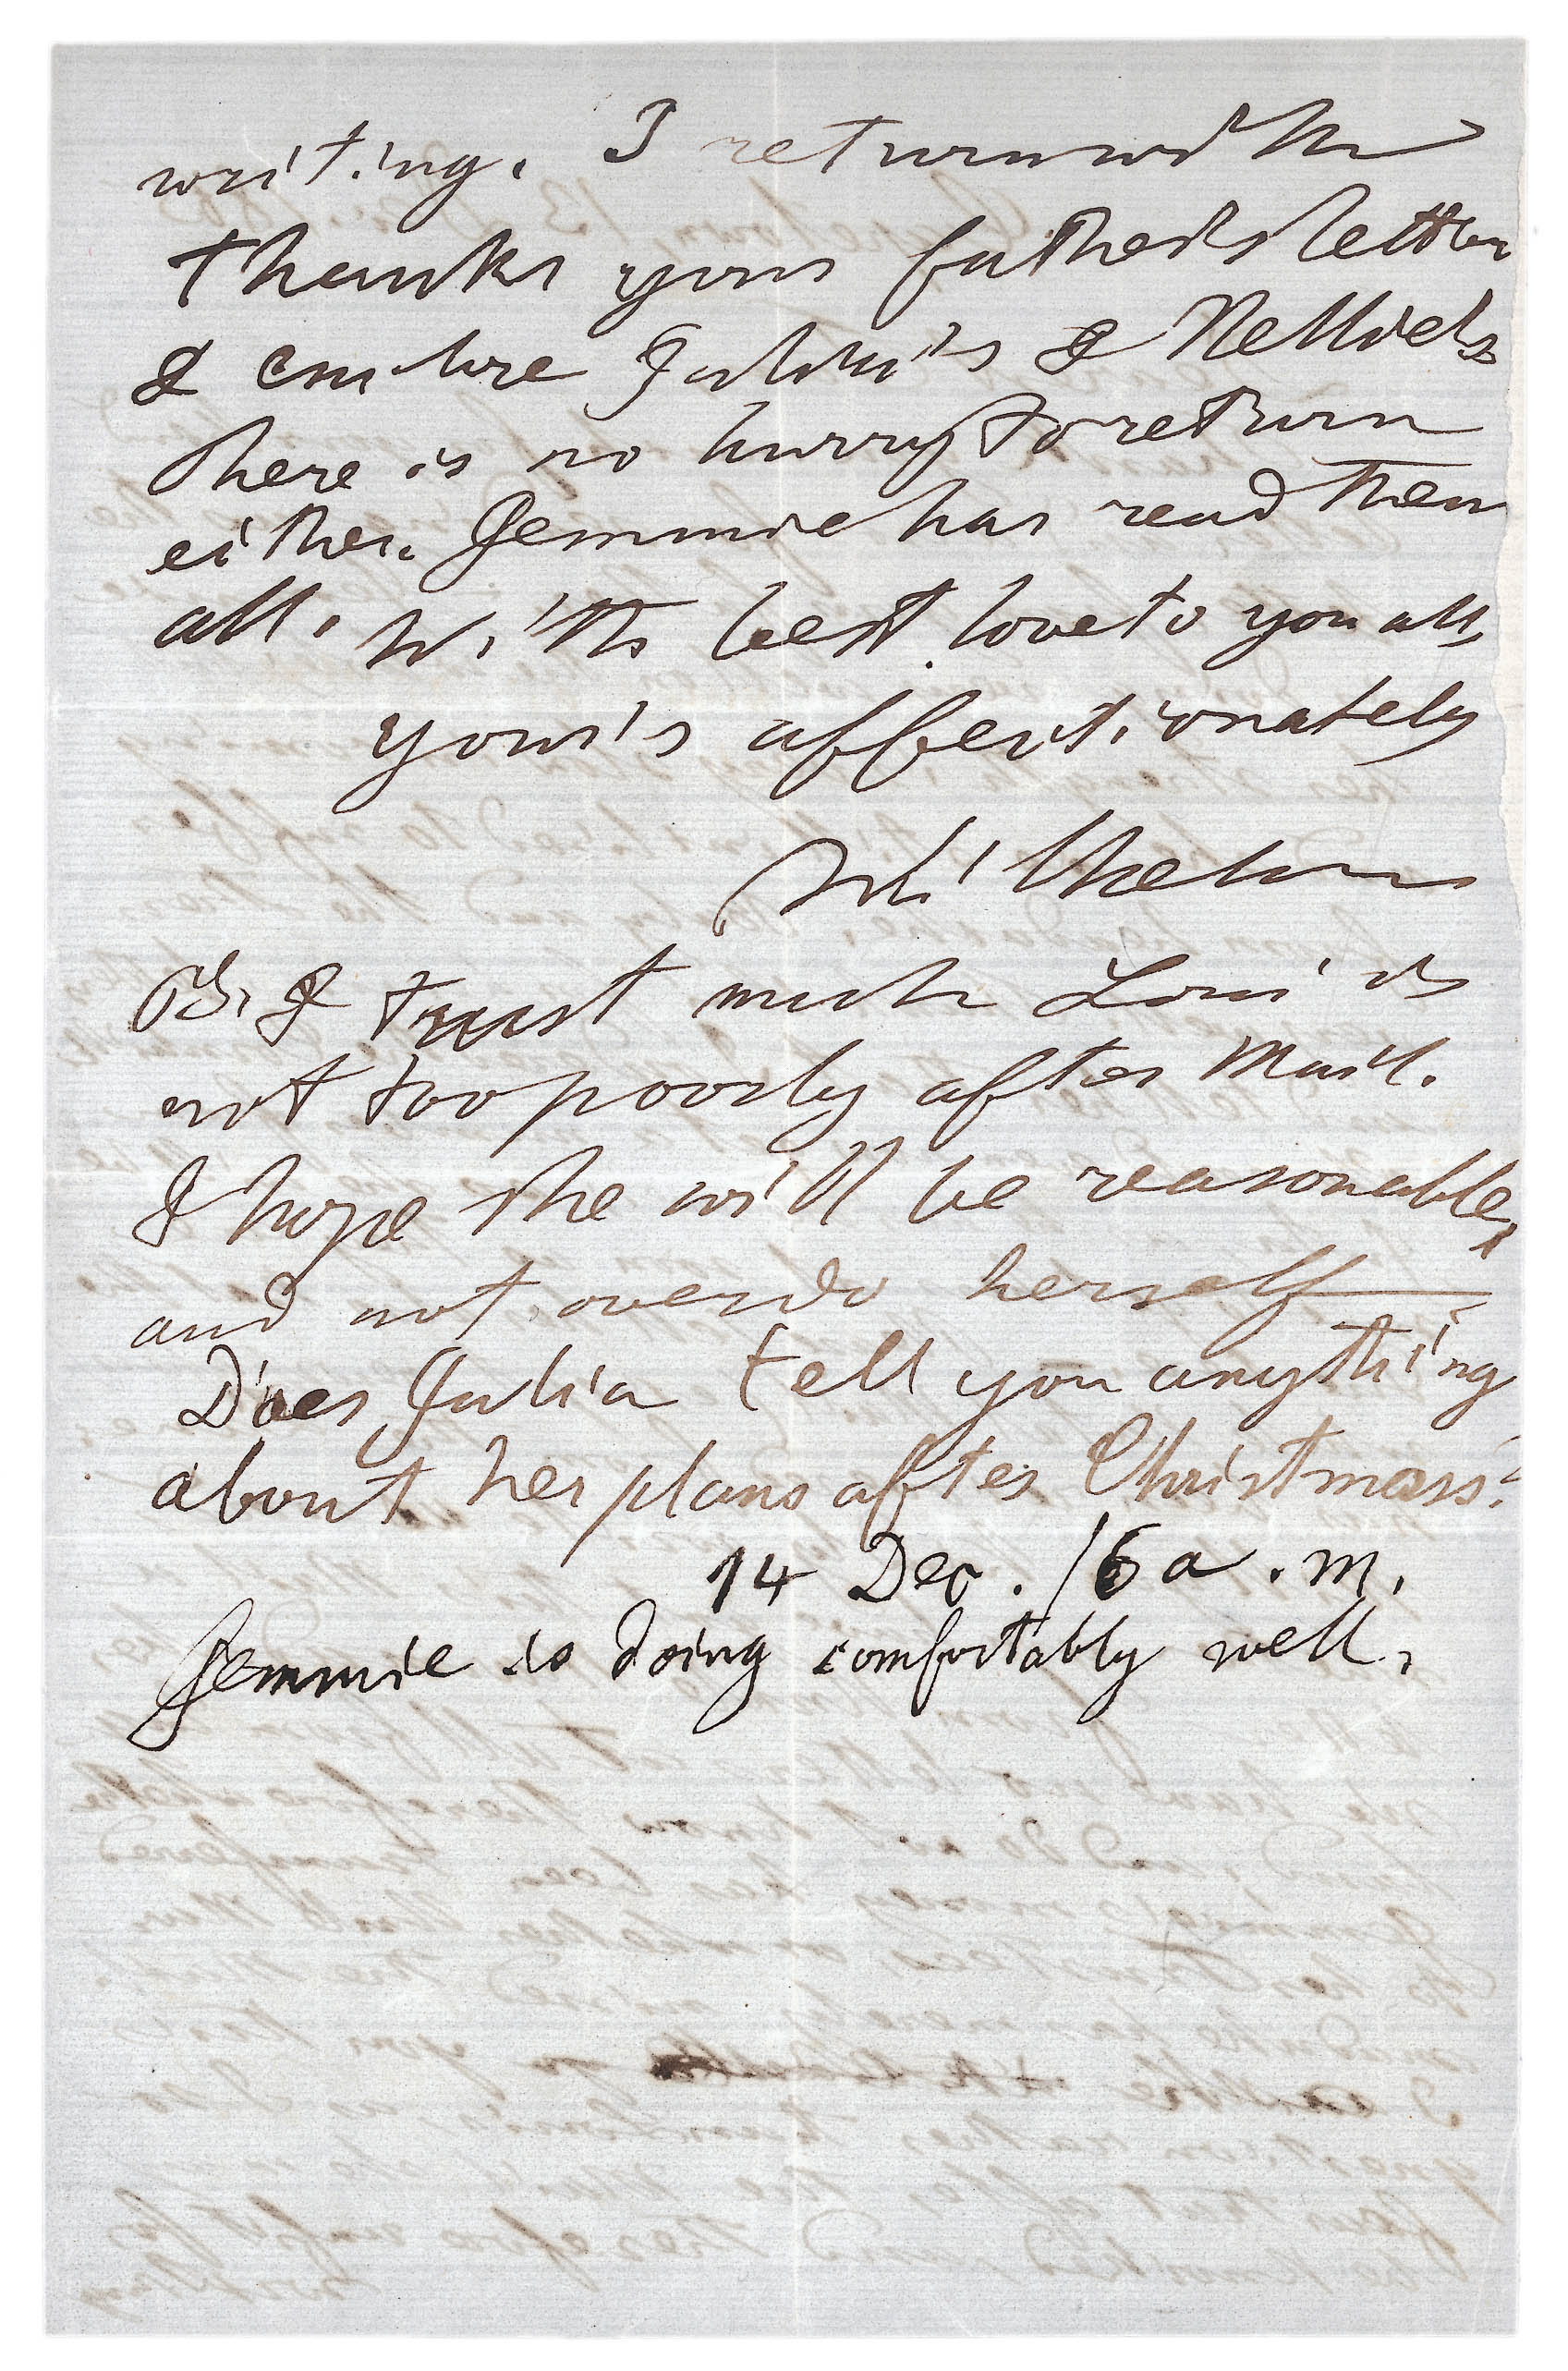 writing. I return with
thanks your father's letter
& enclose Julia's & Nellie's
There is no hurry to return
either. Jemmie has read them
all. With best love to you all,
your's affectionately
Wilhelm
PS. I trust much Loui is
not too poorly after Mail.
I hope she will be reasonable,
and not overdo herself
Does Julia tell you anything
about her plans after Christmass?
14 Dec. /6 a.m.
Jemmie is doing comfortably well.